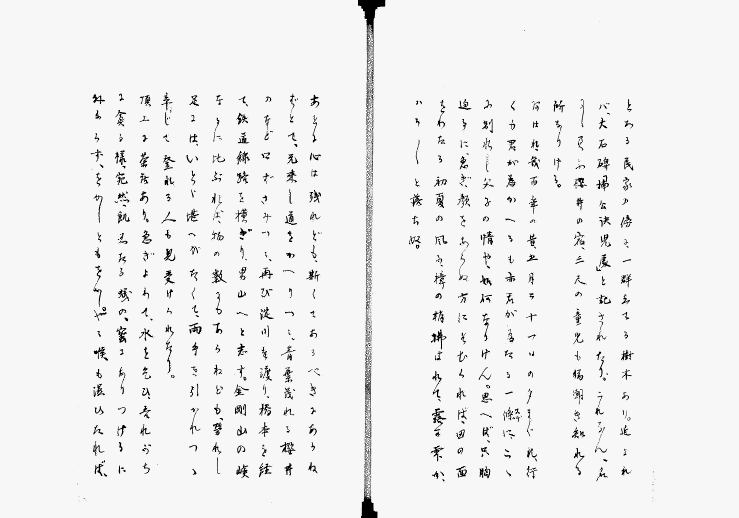 とある民家の傍に一群しげる樹木あり。近よれ
ば、大石碑楠公訣児處と記されたり。これなん、名
にしおふ櫻井の宿、三尺の童児も猶聞き知れる
所なりける。
あはれ、幾百年の昔、五月三十一日の夕まぐれ、行
くカ君が為かへるも亦君が為なる一條に、こゝ
に別れし父子の情や、如何なりけん。思へば、只胸
迫るに、急ぎ顔をあらぬ方にそむくれば、田の面
をわたる初夏の風に、樟の梢拂はれて、露か雫か、
はらはらと落ちぬ。
あとに心は残れども、斯くてあるべきにあらね
ばとて、元来し道をかへりつゝ、青葉茂れる櫻井
のなど口ずさみつゝ、再び淀川を渡り、橋本を経
て、鉄道線路を横ぎり、男山へと志す。金剛山の嶮
なるに比ぶれば、物の數にもあらねども、勞れし
足には、いとゞ堪へがたくて、両手を引かれつゝ
辛じて登れる人も見受けられたり。
頂上に茶店あり。急ぎよりて、水を乞ひ呑れぶり
に貪る様、宛然、飢ゑたる蟻の、蜜にありつけるに
外ならず、をかしともをかし。やゝ喉も濕ひたれば、